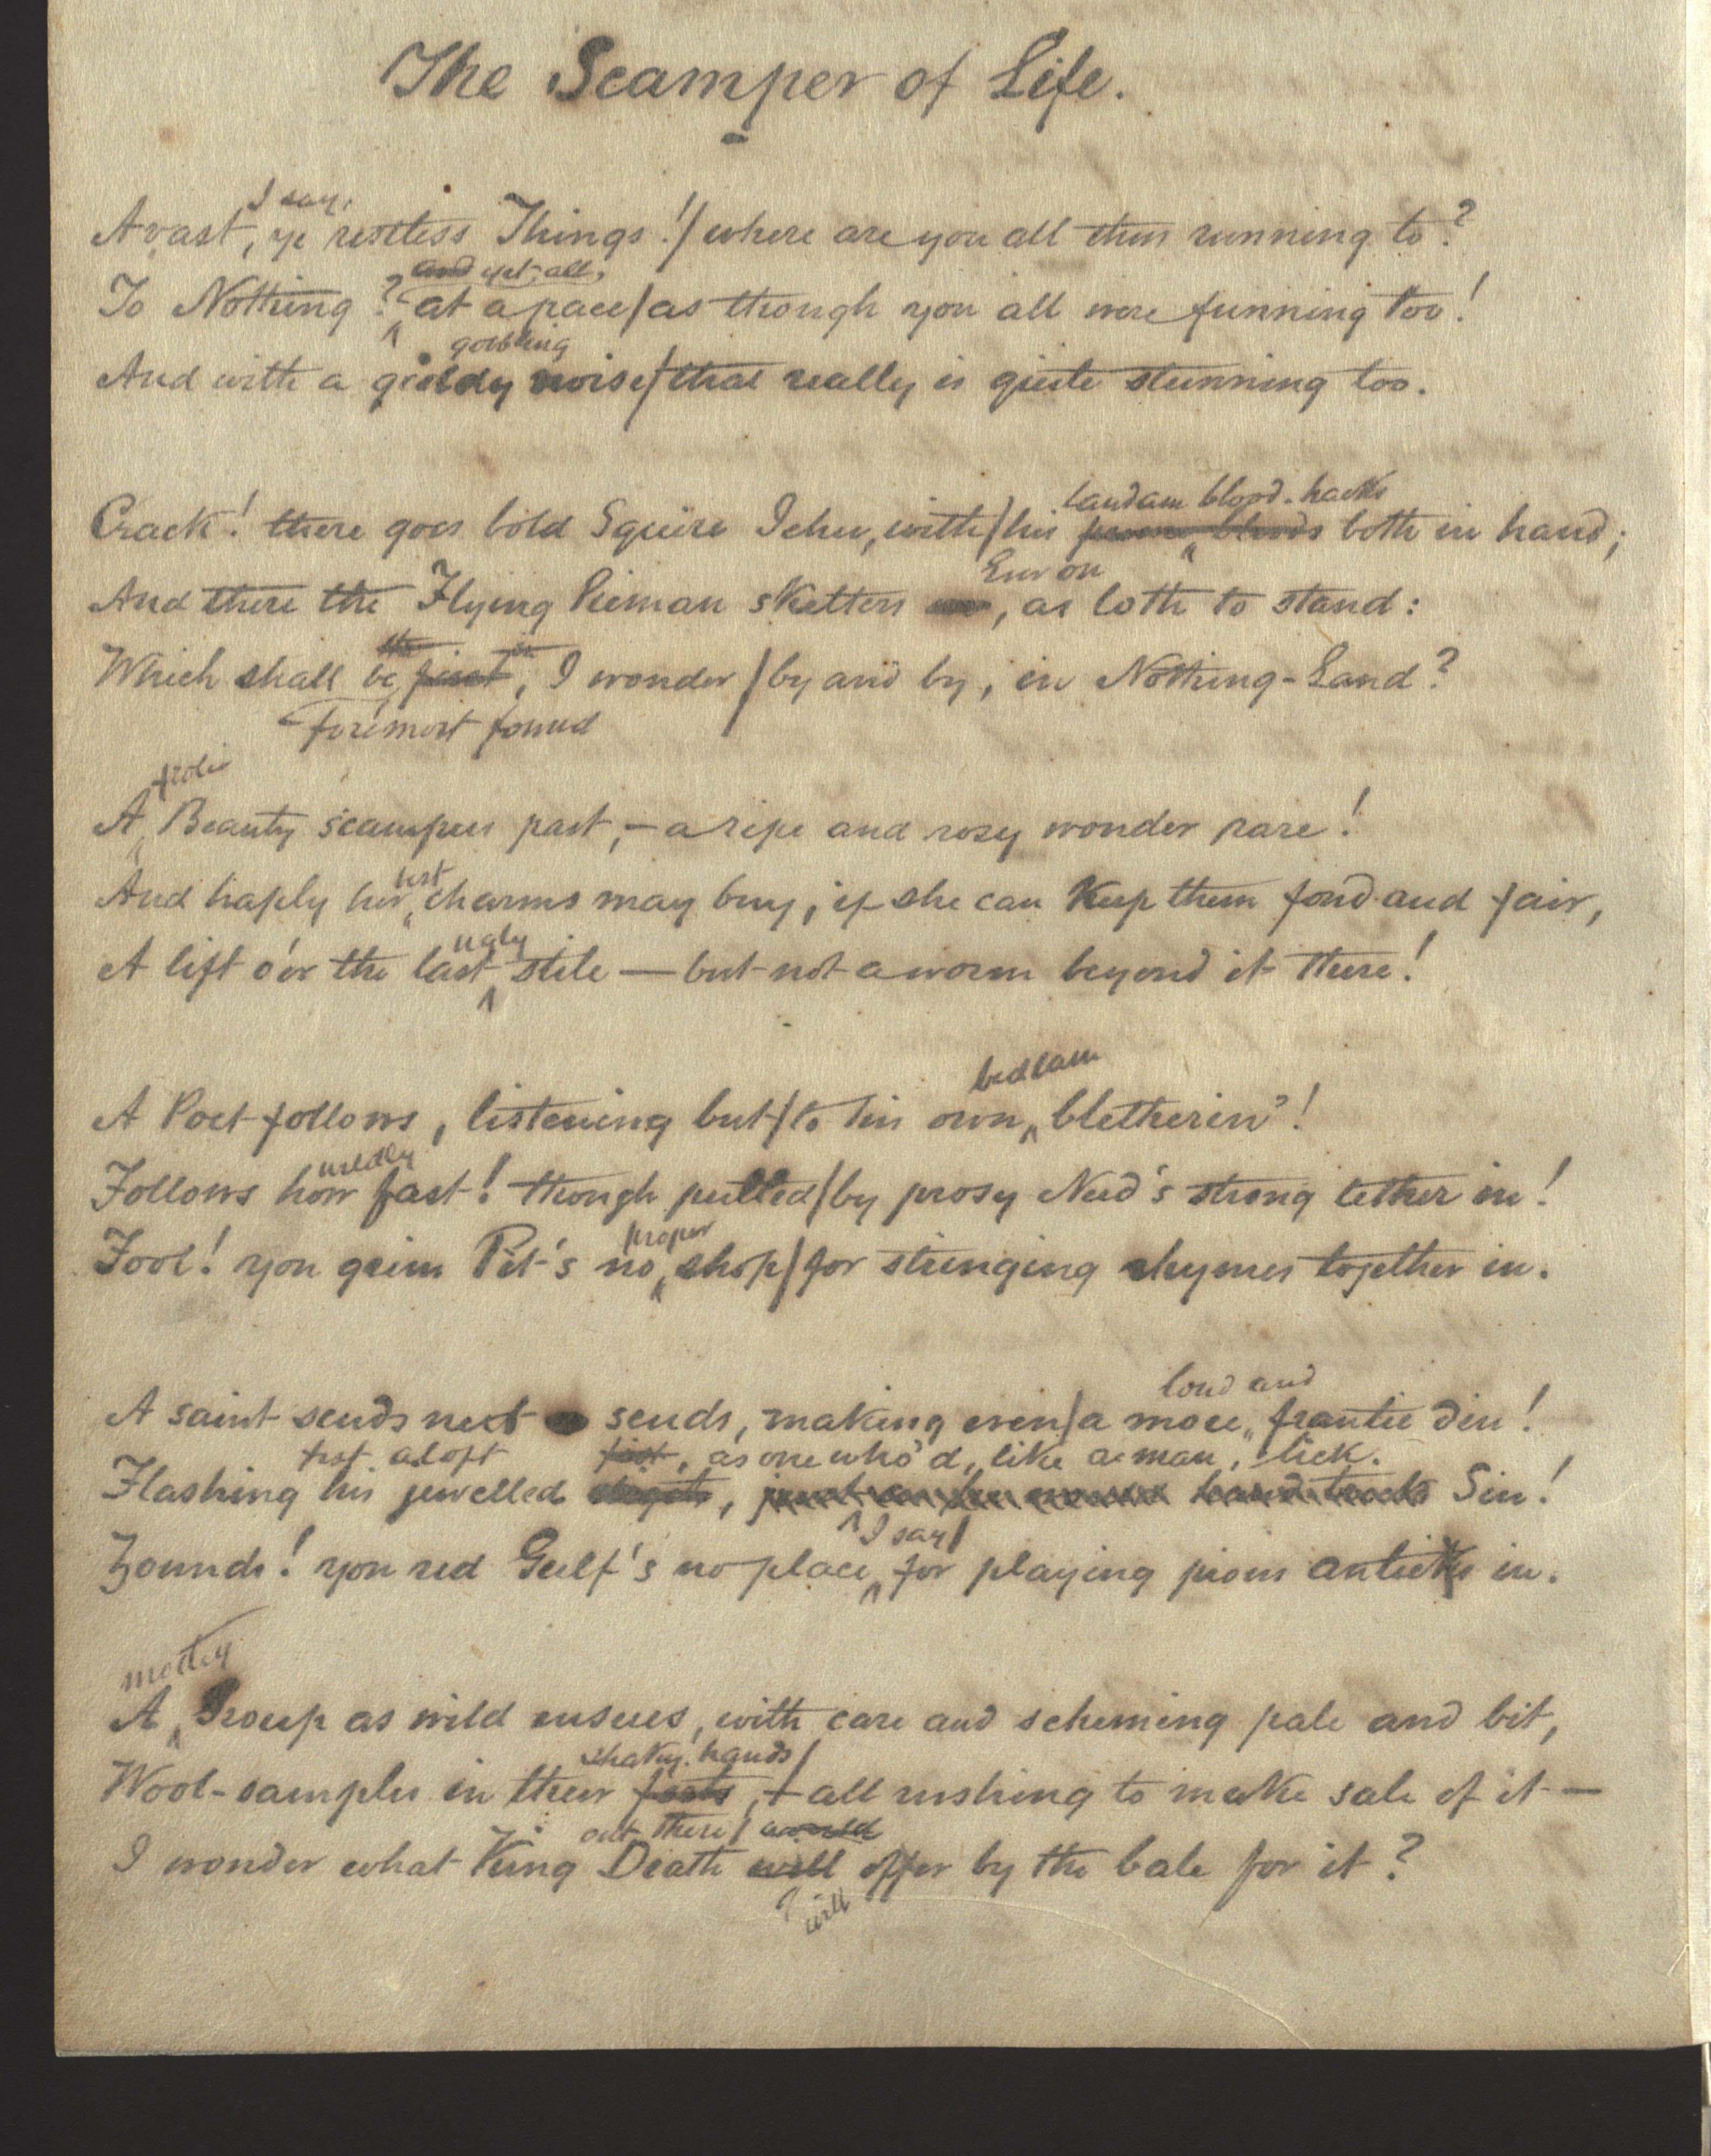 The Scamper of Life.
I say,
Avast, ye restless Things!/ where are you all thus running to?
and yet, all,
To Nothing? at a pace/ as though you all were funning too!
gobbling
And with a giddy noise/ that really is quite stunning too.
tandam blood-hacks
Crack! there goes bold Squire Jehu, with/ his bloods both in hand;
Sur on
And there the Flying Pieman sketters, as loth to stand:
the
Which shall be first, I wonder / by and by, in Nothing-Land?
foremost found
frolic
A Beauty scampers past, – a ripe and rosy wonder rare!
And haply her charms may buy, if she can Keep them fond and fair,
ugly
A lift o'er the last stile — but not a worm beyond it there!
bedlam
A Poet follows, listening but/ to his own bletherin'!
wildly
Follows how fast! though pulled/ by prosy Need's strong tether in!
proper
Fool! yon grim Pit's no shop/ for stringing rhymes together in.
loud and
A saint scuds next scuds, making even/ a more frantic din!
fist aloft fist, as one who'd, like a man, lick
Flashing his jewelled, Sin!
I say/
Zounds! yon red Gulf's no place for playing pious anticks in.
motley
A Group as wild ensues, with care and scheming pale and bit,
shaky hands/
Wool-samples in their fists, – all rushing to make sale of it —
out there/ would
I wonder what King Death will offer by the bale for it?
will